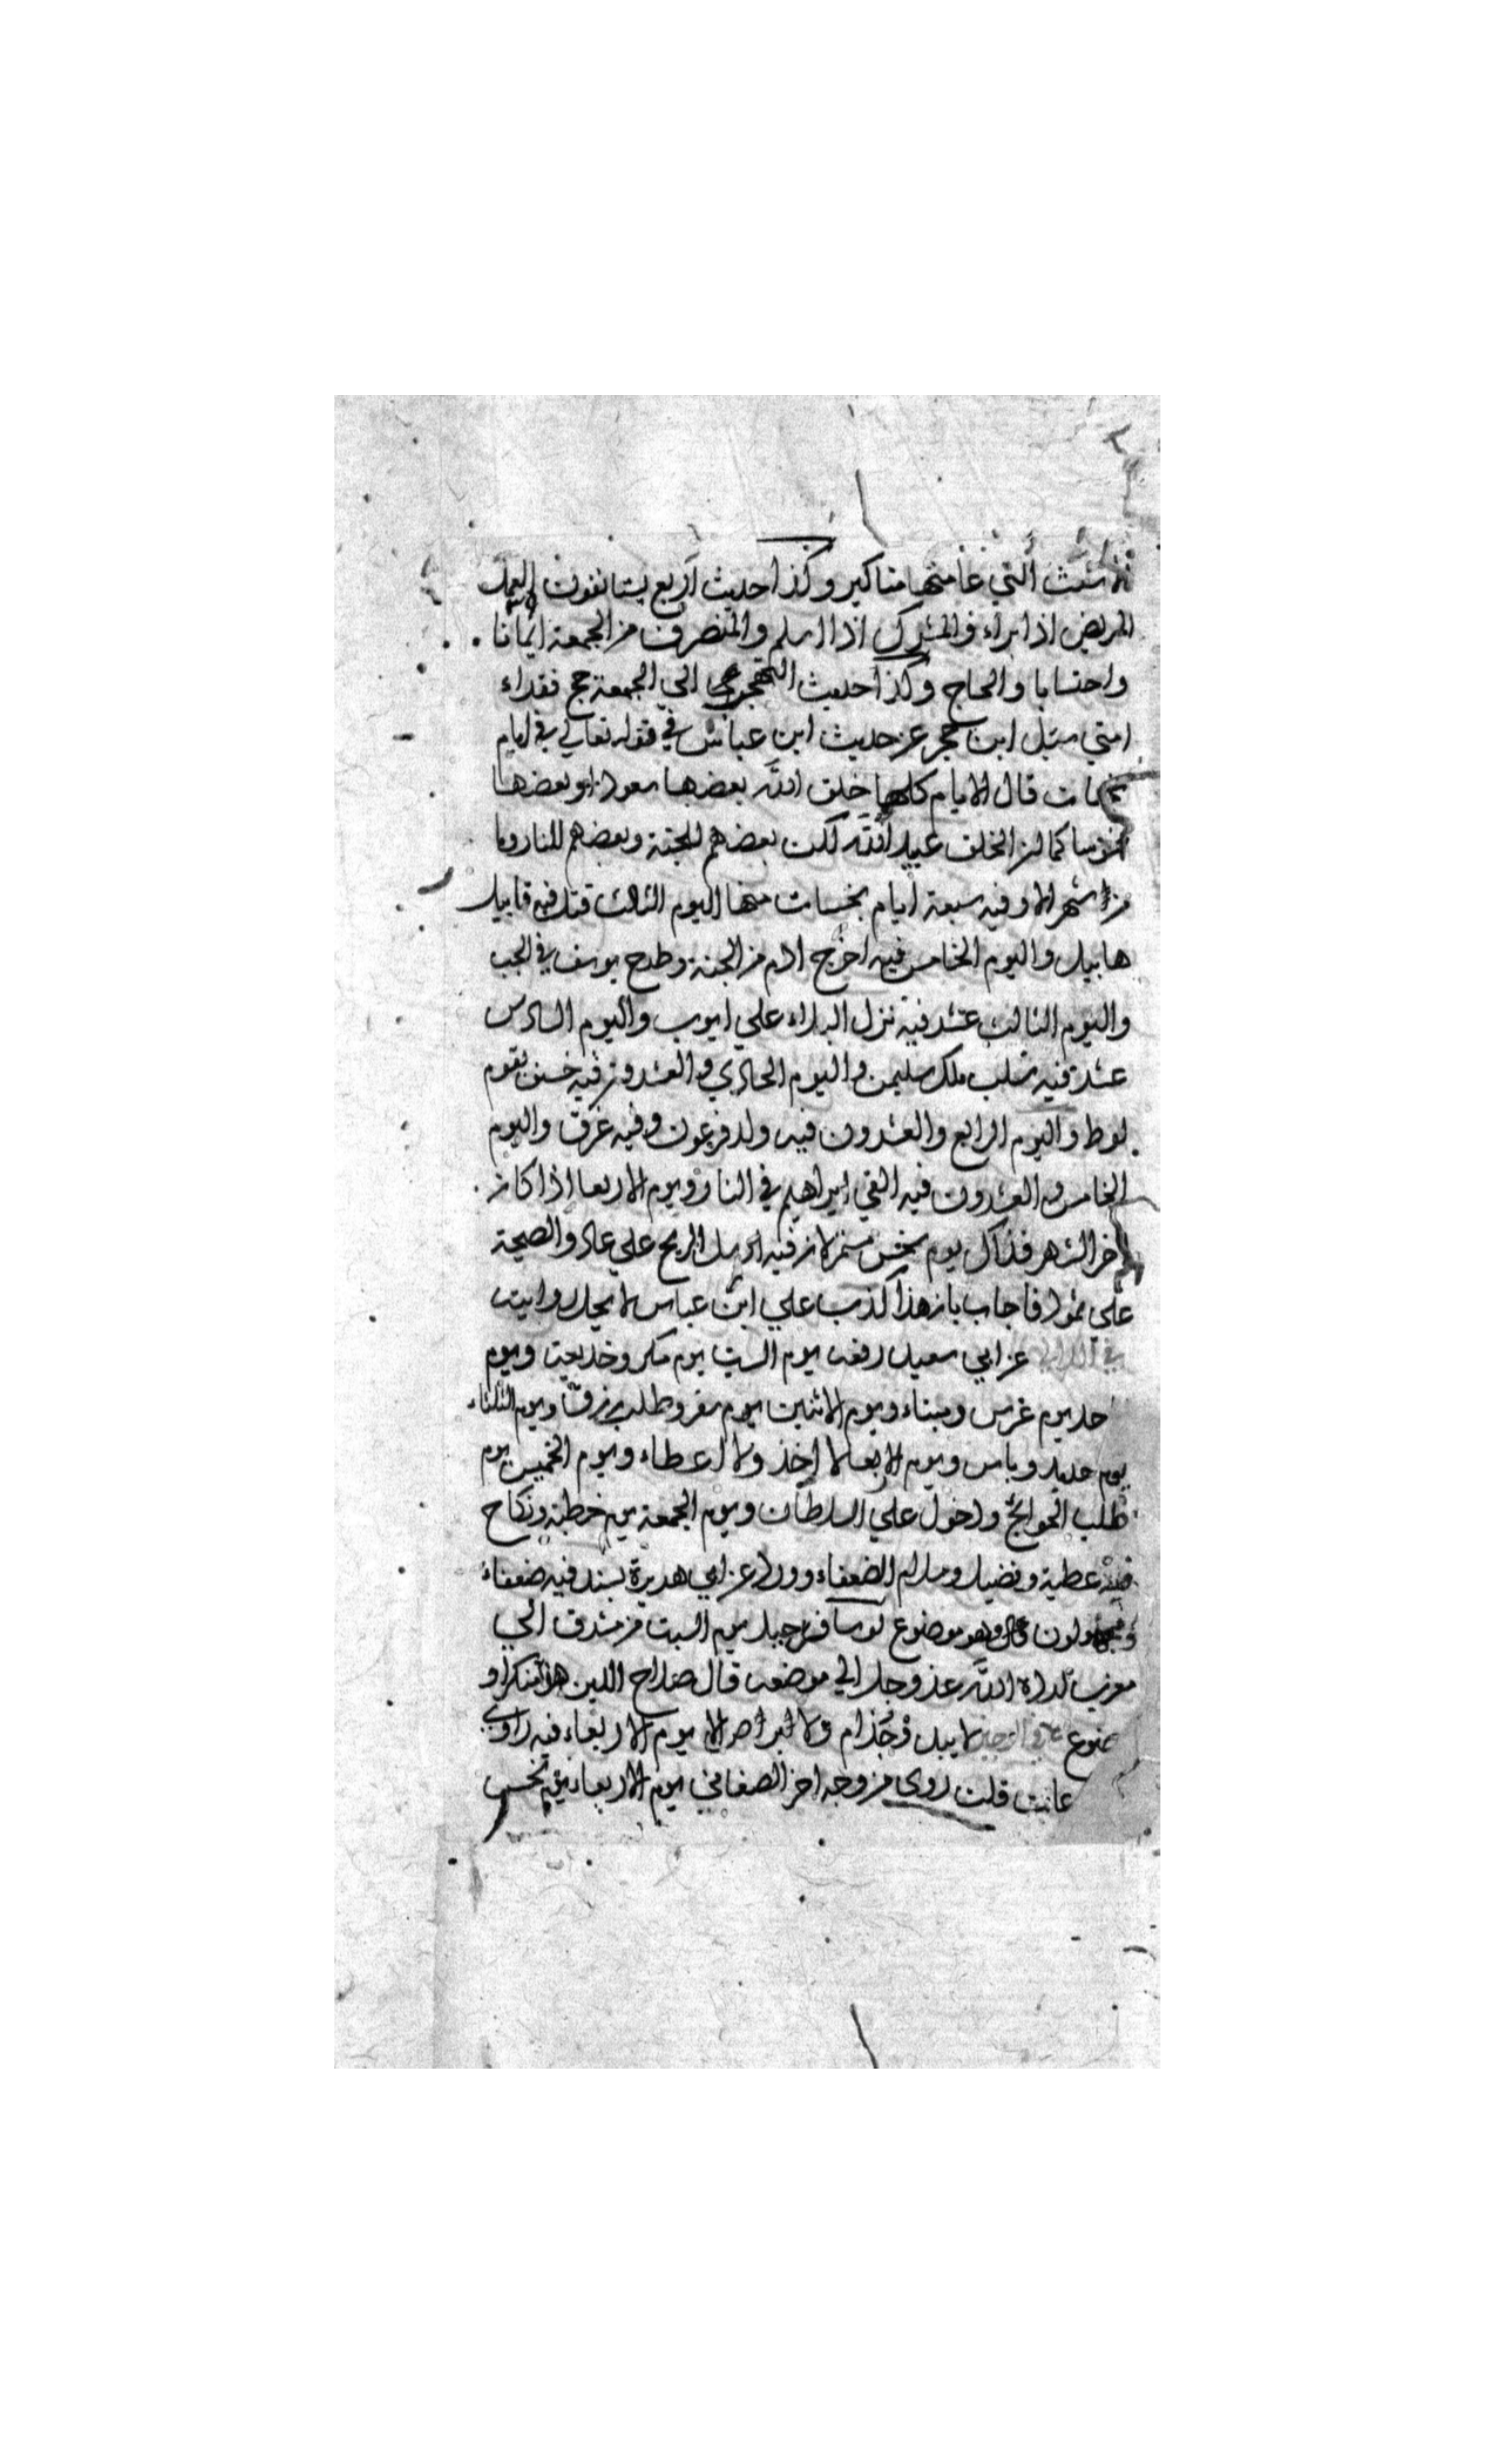 التي عامتها مناكير وكذا حديث اربع يستانفون العمل
المريض اذا براء والمشرك اذا اسلم والمنصرف من الجمعة ايمانا
واحتسابا والحاج وكذا حديث الي الجمعة حج فقراء
امتي سئل ابن حجر عن حديث ابن عباس في قوله تعالي في ايام
نحسات قال الايام كلها خلق الله بعضها سعودا وبعضها
نحوسا كما ان الخلق عبيد الله لكن بعضهم للجنة وبعضهم للنار وما
من شهر الا وفيه سبعة ايام نحسات منها اليوم الثالث قتل فيه قابيل
هابيل واليوم الخامس فيه اخرج ادم من الجنة وطرح يوسف في الجب
واليوم الثالث عشر فيه نزل البلاء علي ايوب واليوم السادس
عشر فيه سلب ملك سليمن واليوم الحادي والعشرون فيه خسف بقوم
لوط واليوم الرابع والعشرون فيه ولد فرعون وفيه غرق واليوم
الخامس والعشرون فيه القي ابراهيم في النار ويوم الاربعا اذا كان
اخر الشهر فذاك يوم نحس مستمر لان فيه ارسل الريح علي عاد والصيحة
علي ثمود فاجاب بان هذا كذب علي ابن عباس لا يحل روايته
عن ابي سعيد رفعه يوم السبت يوم مكر وخديعة ويوم
حد يوم غرس وبناء ويوم الاثنين يوم سفر وطلب رزق ويوم الثلثاء
يوم حديد وباس ويوم الاربعا لا اخذ ولا اعطاء ويوم الخميس يوم
طلب الحوائج ودخول علي السلطان ويوم الجمعة يوم خطبة ونكاح
فيه عطية وفضيل وسلام الضعفاء وورد عن ابي هريرة بسند فيه ضعفاء
ومجهولون موضوع لو سافر جبل يوم السبت من مشرق الي
مغرب لرده الله عز وجل الي موضعه قال صلاح الدين هو منكر او
موضوع لا يبدو جذام ولا ابراص الا يوم الاربعاء فيه راوي
قلت روي من وجه اخر الصغاني يوم الاربعاء يوم نحس